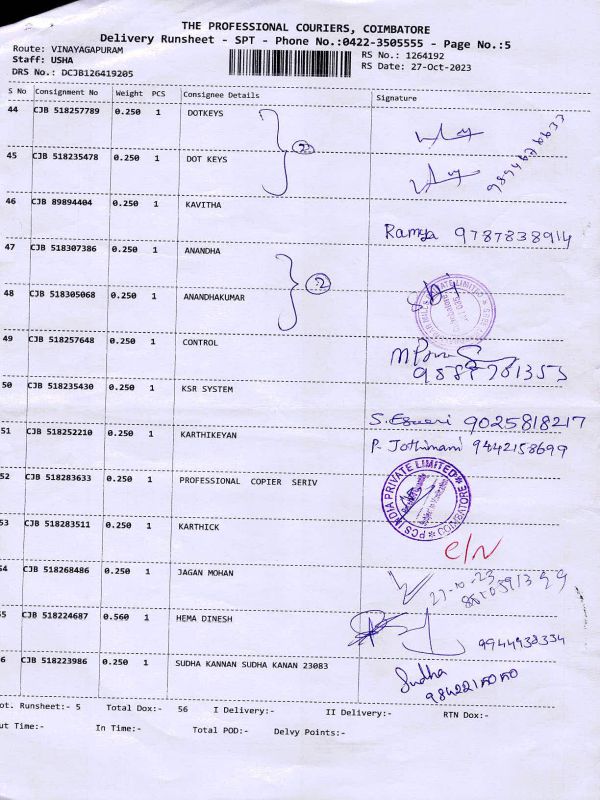 THE PROFESSIONAL COURIERS, COIMBATORE
Delivery Runsheet - SPT - Phone No.:0422-3505555 - Page No.:5
Route: VINAYAGAPURAM RS No.: 1264192
Staff: USHA RS Date: 27-Oct-2023
DRS No.: DCJB126419205
S No Consignment No Weight PCS Consignee Details Signature
44 CJB 518257789 0.250 1 DOTKEYS
45 CJB 518235478 0.250 1 DOT KEYS
2
46 CJB 89894404 0.250 1 KAVITHA Ramya 9787838914
47 CJB 518307386 0.250 1 ANANDHA
2
48 CJB 518305068 0.250 1 ANANDHAKUMAR
49 CJB 518257648 0.250 1 CONTROL
50 CJB 518235430 0.250 1 KSR SYSTEM S. Eswari 9025818217
51 CJB 518252210 0.250 1 KARTHIKEYAN P. Jothimani 9442158699
52 CJB 518283633 0.250 1 PROFESSIONAL COPIER SERIV PCS INDIA PRIVATE LIMITED COIMBATORE
53 CJB 518283511 0.250 1 KARTHICK C/N
54 CJB 518268486 0.250 1 JAGAN MOHAN 27-10-23
55 CJB 518224687 0.560 1 HEMA DINESH 9944938334
56 CJB 518223986 0.250 1 SUDHA KANNAN SUDHA KANAN 23083 Sudha
ot. Runsheet:- 5 Total Dox:- 56 I Delivery:- II Delivery:- RTN Dox:-
ut Time:- In Time:- Total POD:- Delvy Points:-